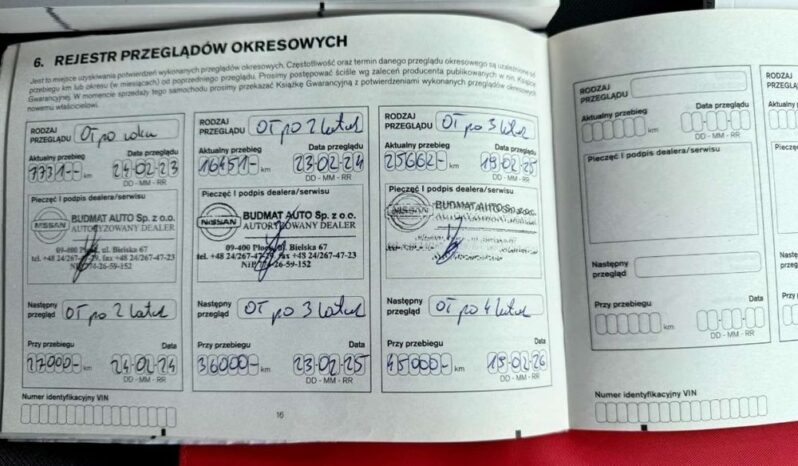 6. REJESTR PRZEGLĄDÓW OKRESOWYCH
Jest to miejsce uzyskiwania potwierdzeń wykonanych przeglądów okresowych. Częstotliwość oraz termin danego przeglądu okresowego są uzależnione od
przebiegu km lub okresu (w miesiącach) od poprzedniego przeglądu. Prosimy postępować ściśle wg zaleceń producenta publikowanych w nin. Książce
Gwarancyjnej. W momencie sprzedaży tego samochodu prosimy przekazać Książkę Gwarancyjną z potwierdzeniami wykonanych przeglądów okresowych
nowemu właścicielowi.
RODZAJ PRZEGLĄDU OT po roku
Aktualny przebieg Data przeglądu
7731- km 24-02-23
DD - MM - RR
Pieczęć i podpis dealera/serwisu
NISSAN BUDMAT AUTO Sp. z o.o.
AUTORYZOWANY DEALER
09-400 Płock, ul. Bielska 67
tel. +48 24/267-47-29, fax +48 24/267-47-23
NIP 774-26-59-152
Następny przegląd OT po 2 latach
Przy przebiegu Data
27000- km 24-02-24
DD - MM - RR
Numer identyfikacyjny VIN
RODZAJ PRZEGLĄDU OT po 2 latach
Aktualny przebieg Data przeglądu
16451- km 23-02-24
DD - MM - RR
Pieczęć i podpis dealera/serwisu
NISSAN BUDMAT AUTO Sp. z o.o.
AUTORYZOWANY DEALER
09-400 Płock, ul. Bielska 67
tel. +48 24/267-47-29, fax +48 24/267-47-23
NIP 774-26-59-152
Następny przegląd OT po 3 latach
Przy przebiegu Data
36000- km 23-02-25
DD - MM - RR
16
RODZAJ PRZEGLĄDU OT po 3 latach
Aktualny przebieg Data przeglądu
25662- km 19-02-25
DD - MM - RR
Pieczęć i podpis dealera/serwisu
BUDMAT AUTO Sp. z o.o.
Następny przegląd OT po 4 latach
Przy przebiegu Data
45000- km 19-02-26
DD - MM - RR
RODZAJ PRZEGLĄDU
Aktualny przebieg Data przeglądu
km
DD - MM - RR
Pieczęć i podpis dealera/serwisu
Następny przegląd
Przy przebiegu Data
km
DD - MM - RR
Numer identyfikacyjny VIN